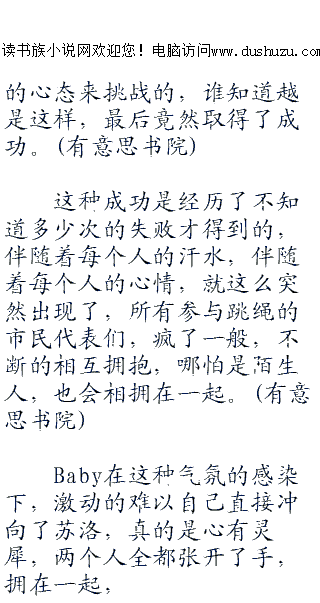 读书族小说网欢迎您！电脑访问www.dushuzu.com
的心态来挑战的，谁知道越
是这样，最后竟然取得了成
功。(有意思书院)
这种成功是经历了不知
道多少次的失败才得到的，
伴随着每个人的汗水，伴随
着每个人的心情，就这么突
然出现了，所有参与跳绳的
市民代表们，疯了一般，不
断的相互拥抱，哪怕是陌生
人，也会相拥在一起。(有意
思书院)
Baby在这种气氛的感染
下，激动的难以自己直接冲
向了苏洛，真的是心有灵
犀，两个人全都张开了手，
拥在一起，